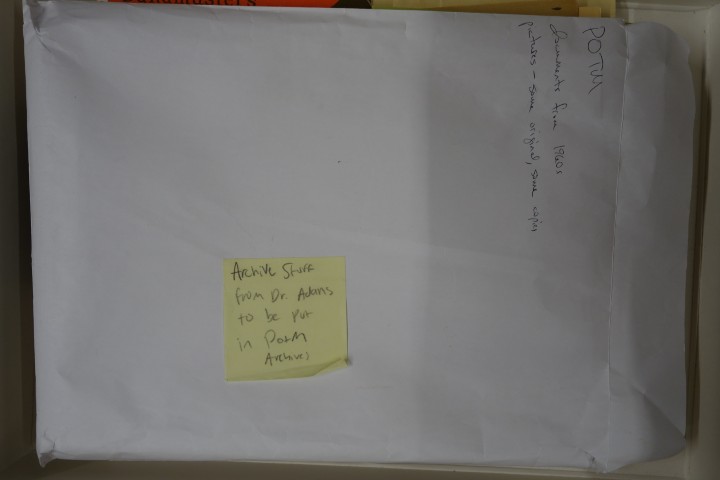 POTM
documents from 1960s
pictures - some original, some copies
Archive Stuff
from Dr. Adams
to be put
in PotM
Archives